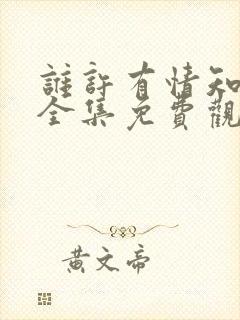 誰許有情知
全集免費觀
黃文帝